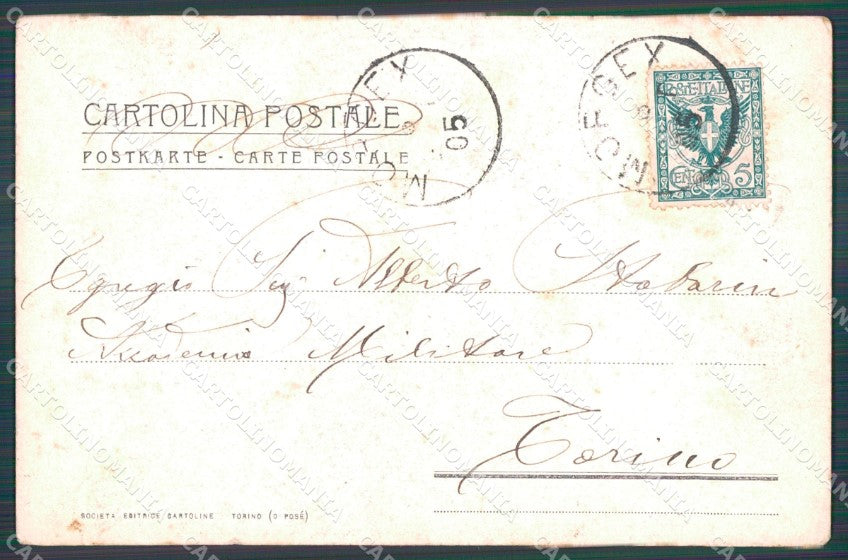 CARTOLINA POSTALE
POSTKARTE - CARTE POSTALE
MORGEX
05
MORGEX
05
POSTE ITALIANE
CENT. 5
Egregio Sig Alberto
Accademia Militare
Torino
SOCIETÀ EDITRICE CARTOLINE TORINO (D POSÉ)
CARTOLINOMANIA